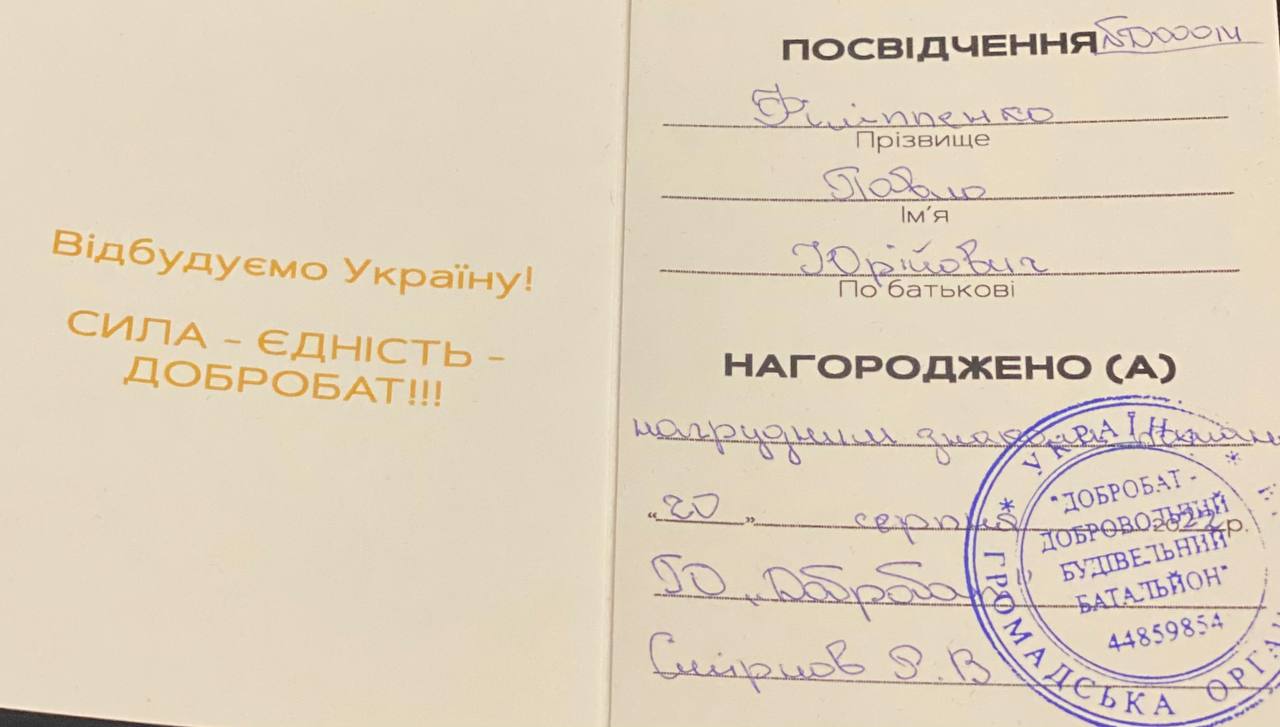 Відбудуємо Україну!
СИЛА - ЄДНІСТЬ -
ДОБРОБАТ!!!
ПОСВІДЧЕННЯ
Філіппенко
Прізвище
Павло
Ім'я
Юрійович
По батькові
НАГОРОДЖЕНО (А)
нагрудним знаком
"20" серпня 2022р.
ГО „Добробат"
Смірнов Р.В
* УКРАЇНА *
ГРОМАДСЬКА
"ДОБРОБАТ -
ДОБРОВОЛЬЧИЙ
БУДІВЕЛЬНИЙ
БАТАЛЬЙОН"
44859854